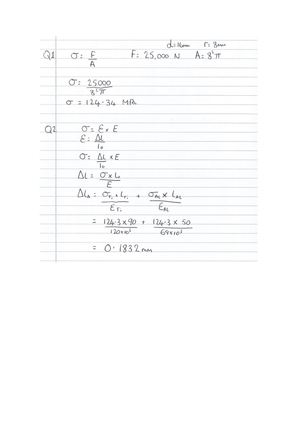 d=16mm r=8mm
Q1 σ = F/A F = 25,000 N A = 8²π
σ = 25000/8²π
σ = 124.34 MPa
Q2 σ = ε × E
ε = ΔL/L₀
σ = ΔL/L₀ × E
ΔL = σ × L₀/E
ΔLₐ = σTi × LTi/ETi + σAL × LAL/EAL
= 124.3 × 90/120×10³ + 124.3 × 50/69×10³
= 0.1832 mm